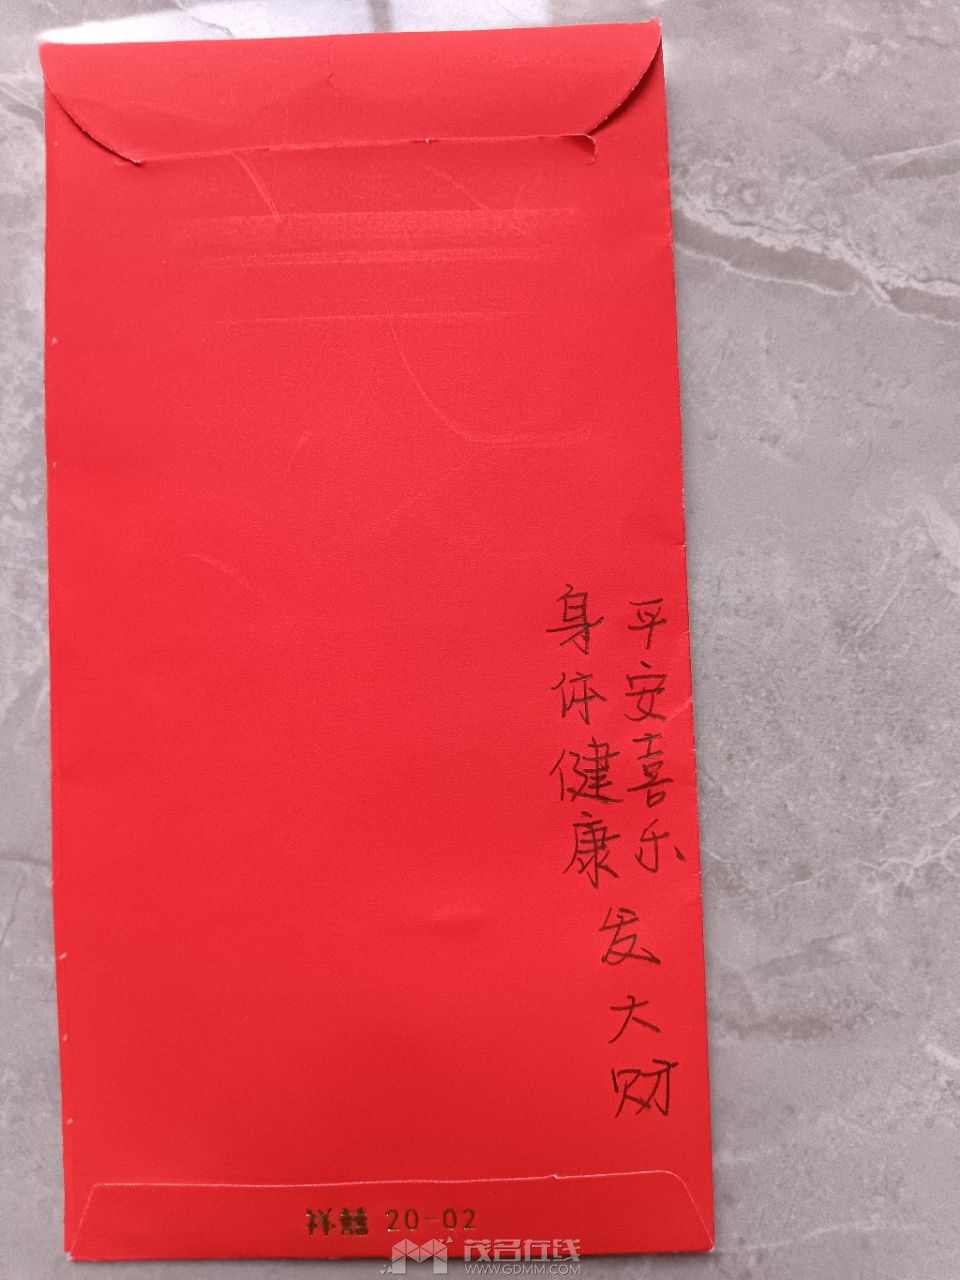 平安喜乐
身体健康
发大财
祥囍 20-02
茂名在线
WWW.GDMM.COM